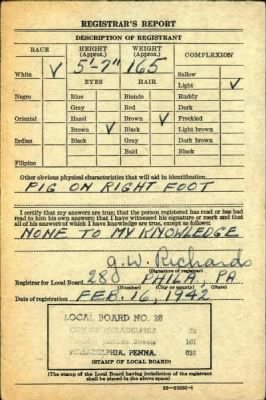 REGISTRAR'S REPORT
DESCRIPTION OF REGISTRANT
RACE HEIGHT (Approx.) WEIGHT (Approx.) COMPLEXION
5'-7" 165
White ✓ Sallow
EYES HAIR Light ✓
Negro Blue Blonde Ruddy
Gray Red Dark
Oriental Hazel Brown ✓ Freckled
Brown ✓ Black Light brown
Indian Black Gray Dark brown
Bald Black
Filipino
Other obvious physical characteristics that will aid in identification
PIG ON RIGHT FOOT
I certify that my answers are true; that the person registered has read or has had
read to him his own answers; that I have witnessed his signature or mark and that
all of his answers of which I have knowledge are true, except as follows:
NONE TO MY KNOWLEDGE
G. W. Richards
(Signature of registrar)
Registrar for Local Board 28 PHILA., PA
(Number) (City or county) (State)
Date of registration FEB. 16, 1942
LOCAL BOARD NO. 28
CITY OF PHILADELPHIA
101
PHILADELPHIA, PENNA.
(STAMP OF LOCAL BOARD)
(The stamp of the Local Board having jurisdiction of the registrant
shall be placed in the above space)